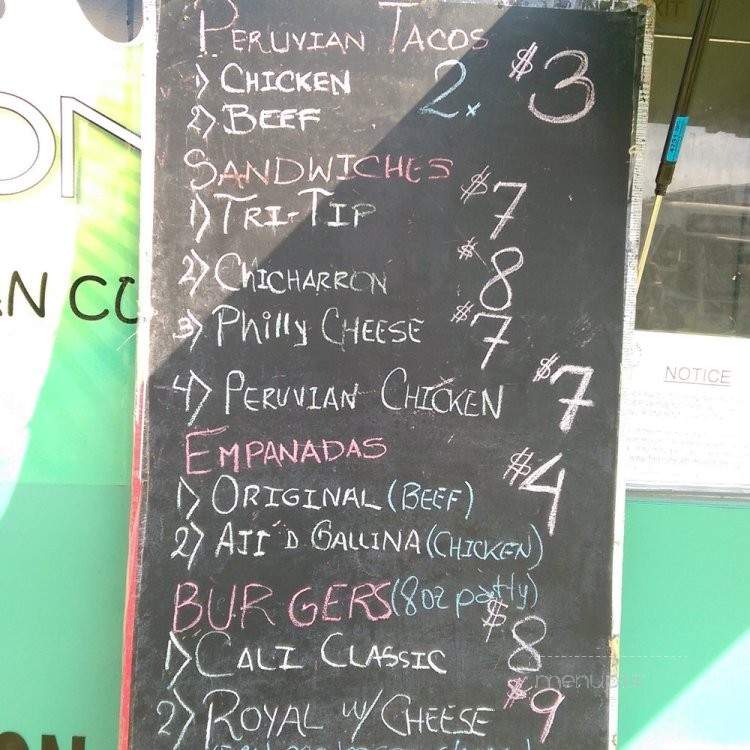 PERUVIAN TACOS
1) CHICKEN 2x $3
2) BEEF
SANDWICHES
1) TRI-TIP $7
2) CHICHARRON $8
3) Philly CHEESE $7
4) PERUVIAN CHICKEN $7
EMPANADAS
1) ORIGINAL (BEEF) $4
2) AJI D GALLINA (CHICKEN)
BURGERS (8oz patty)
1) CALI CLASSIC $8
2) ROYAL W/ CHEESE $9
NOTICE
EXIT
ON
AN CU
ON
menupix